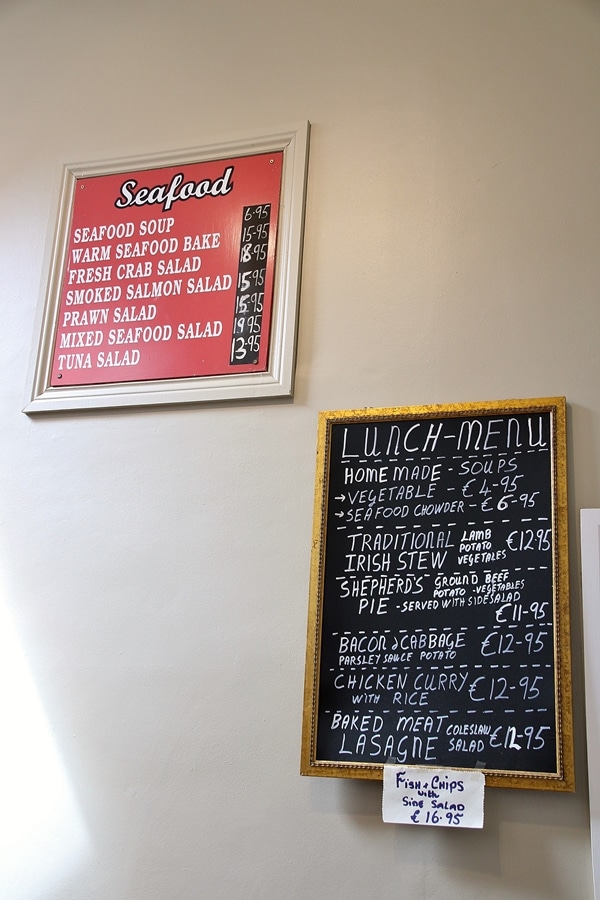 Seafood
SEAFOOD SOUP 6.95
WARM SEAFOOD BAKE 15-95
FRESH CRAB SALAD 18.95
SMOKED SALMON SALAD 15.95
PRAWN SALAD 15.95
MIXED SEAFOOD SALAD 19.95
TUNA SALAD 13.95
LUNCH-MENU
HOME MADE - SOUPS
→VEGETABLE - €4-95
→SEAFOOD CHOWDER - €6-95
TRADITIONAL
IRISH STEW
LAMB
POTATO
VEGETABLES
€12.95
SHEPHERD'S
PIE
GROUND BEEF
POTATO -VEGETABLES
-SERVED WITH SIDE SALAD
€11-95
BACON & CABBAGE €12-95
PARSLEY SAUCE POTATO
CHICKEN CURRY €12-95
WITH RICE
BAKED MEAT
LASAGNE
COLESLAW
SALAD
€12-95
FISH & CHIPS
with
SIDE SALAD
€16.95